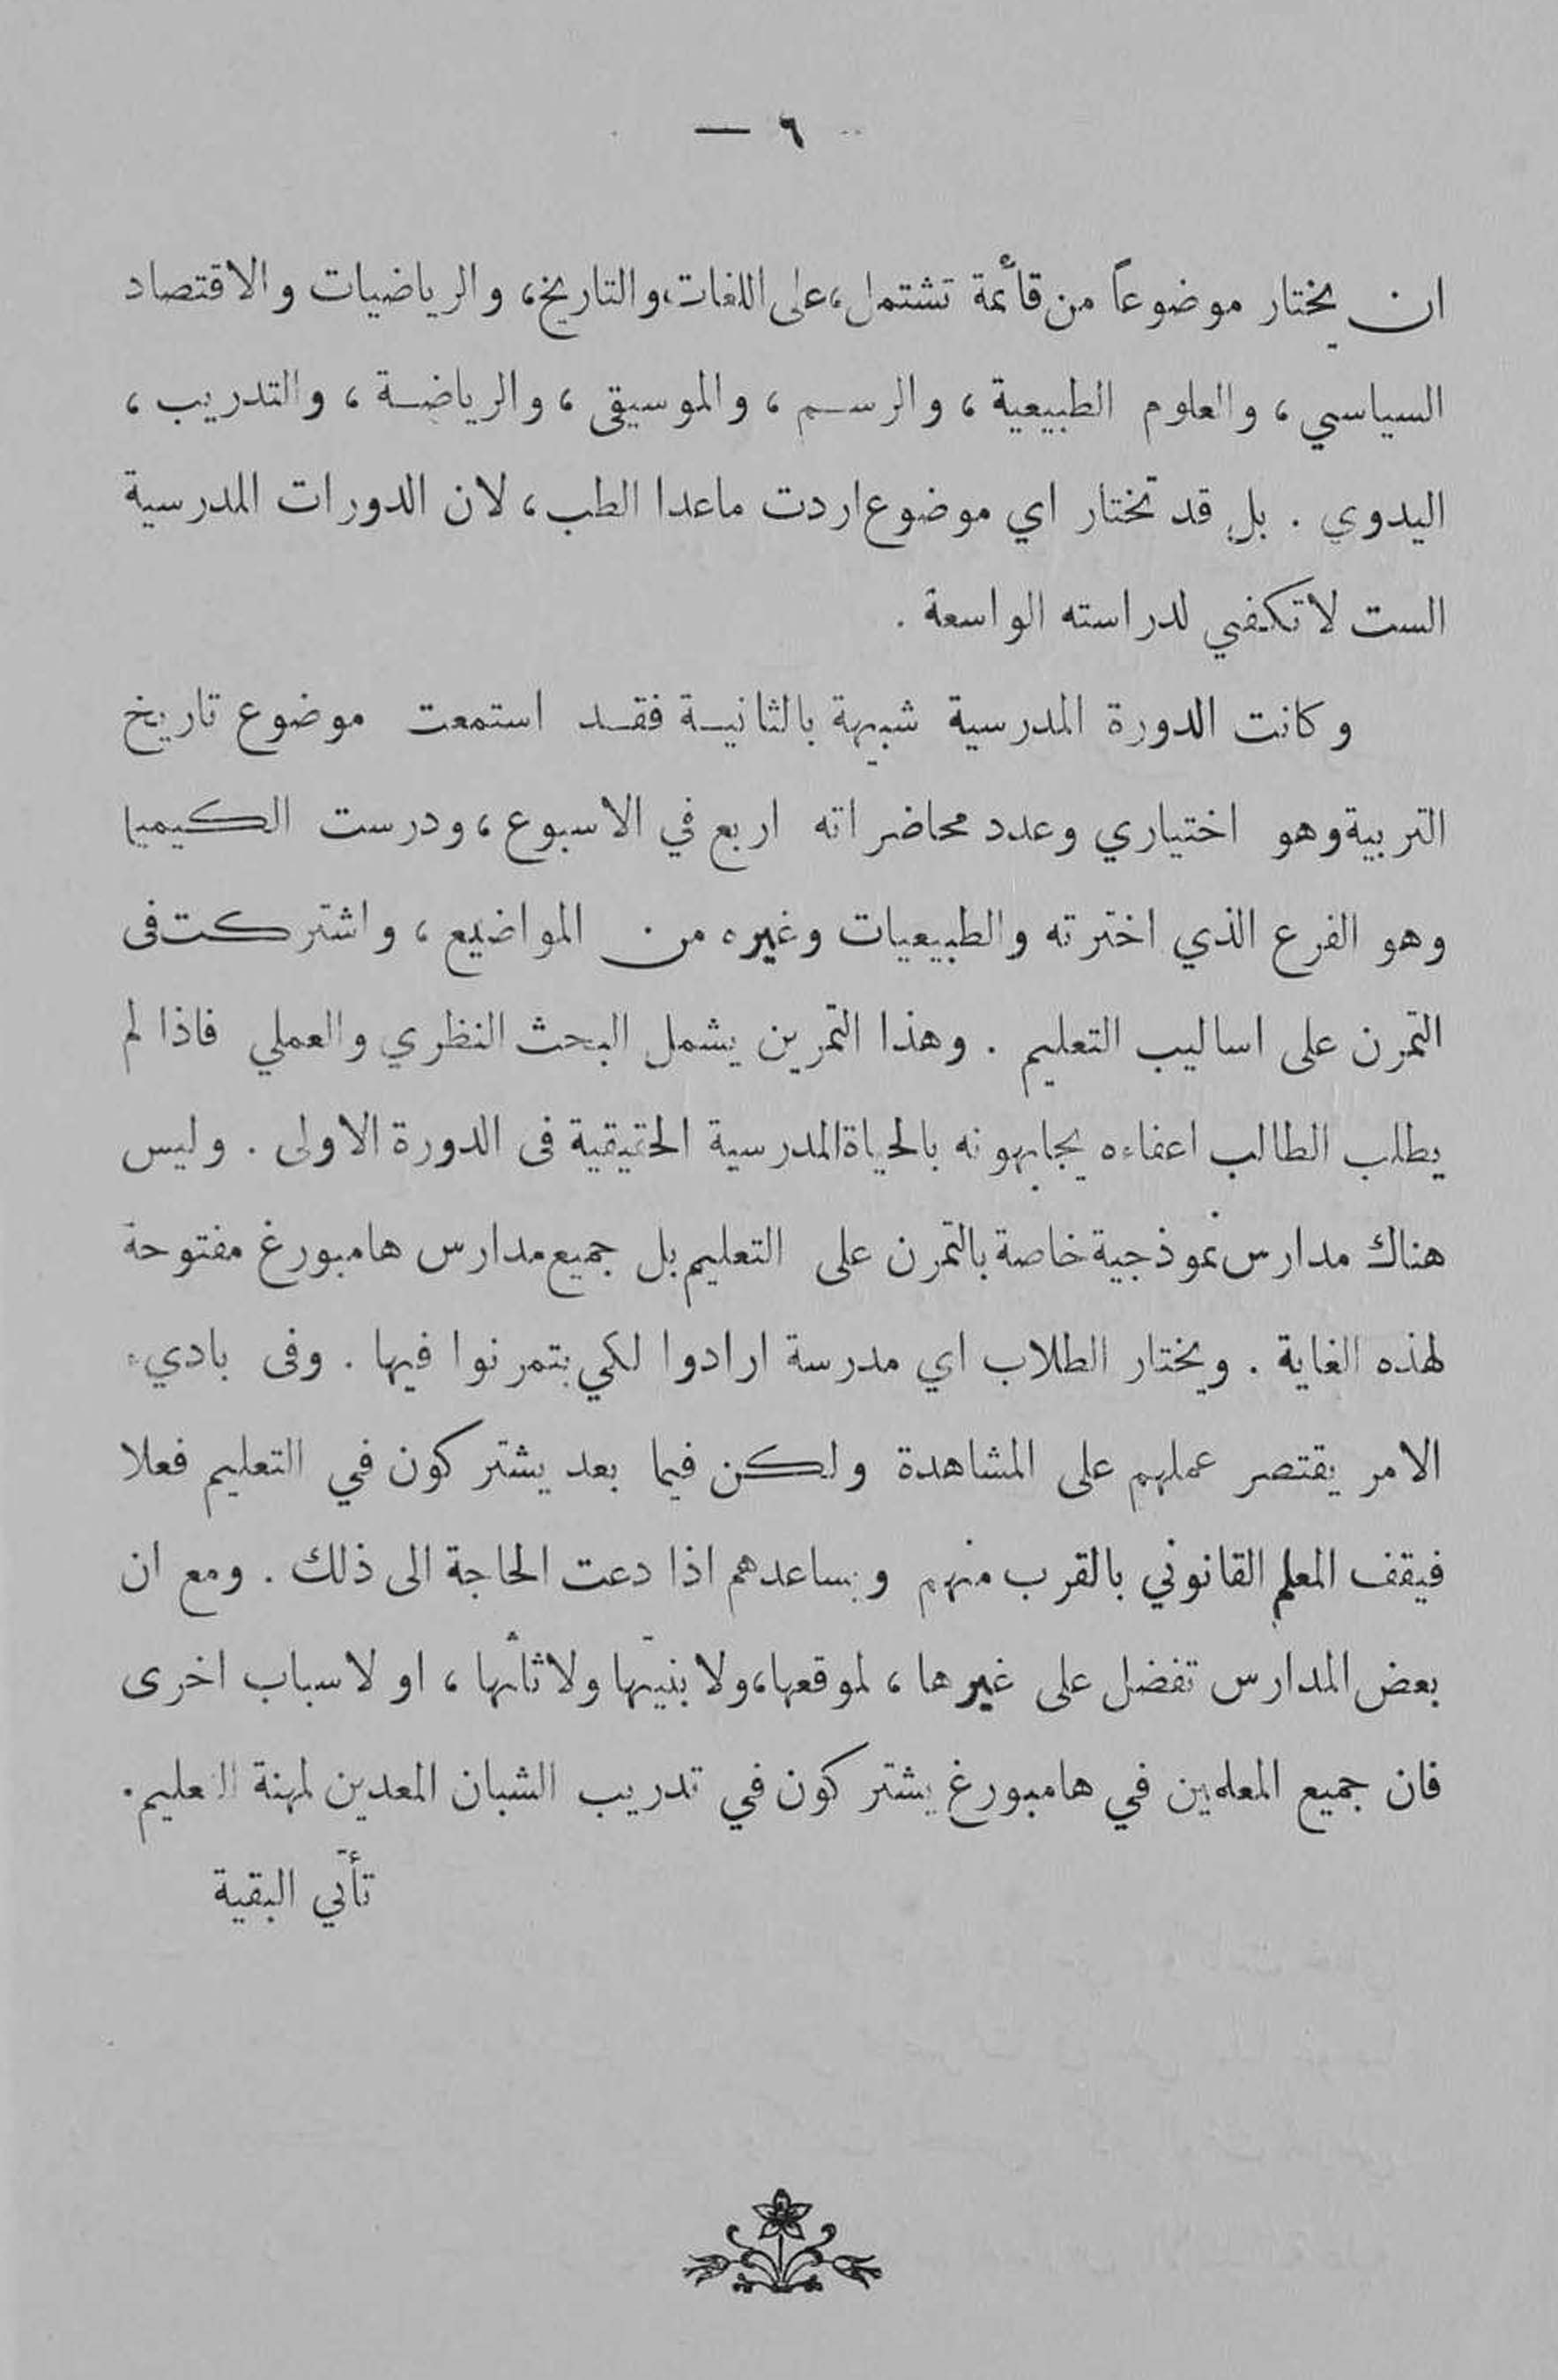 ٦ —
ان يختار موضوعاً من قأئمة تشتمل، على اللغات، والتاريخ، والرياضيات والاقتصاد
السياسي، والعلوم الطبيعية، والرسم، والموسيقى، والرياضة، والتدريب،
اليدوي . بل قد تختار اي موضوع اردت ماعدا الطب، لان الدورات المدرسية
الست لا تكفي لدراسته الواسعة .
وكانت الدورة المدرسية شبيهة بالثانية فقد استمعت موضوع تاريخ
التربية وهو اختياري وعدد محاضراته اربع في الاسبوع، ودرست الكيميا
وهو الفرع الذي اخترته والطبيعيات وغيره من المواضيع، واشتركت فى
التمرن على اساليب التعليم . وهذا التمرين يشمل البحث النظري والعملي فاذا لم
يطلب الطالب اعفاءه يجابهونه بالحياة المدرسية الحقيقية فى الدورة الاولى . وليس
هناك مدارس نموذجية خاصة بالتمرن على التعليم بل جميع مدارس هامبورغ مفتوحة
لهذه الغاية . ويختار الطلاب اي مدرسة ارادوا لكي يتمرنوا فيها . وفى باديء
الامر يقتصر عملهم على المشاهدة ولكن فيما بعد يشتركون في التعليم فعلا
فيقف المعلم القانوني بالقرب منهم ويساعدهم اذا دعت الحاجة الى ذلك . ومع ان
بعض المدارس تفضل على غيرها، لموقعها، ولا بنيتها ولا ثاثها، او لاسباب اخرى
فان جميع المعلمين في هامبورغ يشتركون في تدريب الشبان المعدين لمهنة التعليم.
تأتي البقية